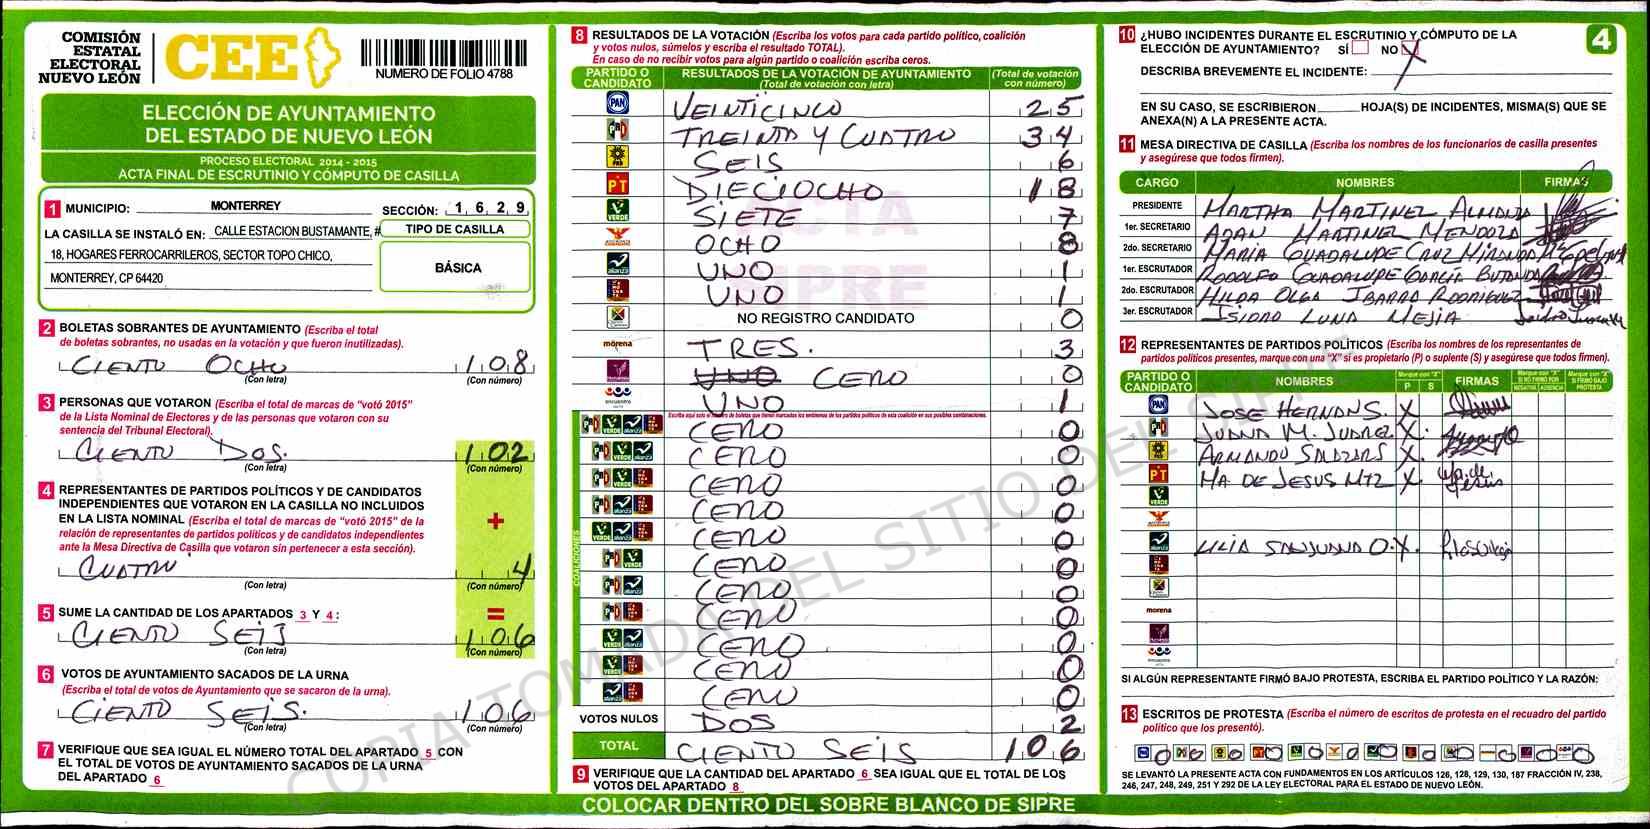 COMISIÓN
ESTATAL
ELECTORAL
NUEVO LEÓN
CEE
NUMERO DE FOLIO 4788
ELECCIÓN DE AYUNTAMIENTO
DEL ESTADO DE NUEVO LEÓN
PROCESO ELECTORAL 2014 - 2015
ACTA FINAL DE ESCRUTINIO Y CÓMPUTO DE CASILLA
1 MUNICIPIO: MONTERREY SECCIÓN: 1 6 2 9
LA CASILLA SE INSTALÓ EN: CALLE ESTACION BUSTAMANTE, #
18, HOGARES FERROCARRILEROS, SECTOR TOPO CHICO,
MONTERREY, CP 64420
TIPO DE CASILLA
BÁSICA
2 BOLETAS SOBRANTES DE AYUNTAMIENTO (Escriba el total
de boletas sobrantes, no usadas en la votación y que fueron inutilizadas).
CIENTO OCHO 108
(Con letra) (Con número)
3 PERSONAS QUE VOTARON (Escriba el total de marcas de "votó 2015"
de la Lista Nominal de Electores y de las personas que votaron con su
sentencia del Tribunal Electoral).
CIENTO DOS. 102
(Con letra) (Con número)
4 REPRESENTANTES DE PARTIDOS POLÍTICOS Y DE CANDIDATOS
INDEPENDIENTES QUE VOTARON EN LA CASILLA NO INCLUIDOS
EN LA LISTA NOMINAL (Escriba el total de marcas de "votó 2015" de la
relación de representantes de partidos políticos y de candidatos independientes
ante la Mesa Directiva de Casilla que votaron sin pertenecer a esta sección).
+
CUATRO 4
(Con letra) (Con número)
5 SUME LA CANTIDAD DE LOS APARTADOS 3 Y 4:
=
CIENTO SEIS 106
(Con letra) (Con número)
6 VOTOS DE AYUNTAMIENTO SACADOS DE LA URNA
(Escriba el total de votos de Ayuntamiento que se sacaron de la urna).
CIENTO SEIS. 106
(Con letra) (Con número)
7 VERIFIQUE QUE SEA IGUAL EL NÚMERO TOTAL DEL APARTADO 5 CON
EL TOTAL DE VOTOS DE AYUNTAMIENTO SACADOS DE LA URNA
DEL APARTADO 6
8 RESULTADOS DE LA VOTACIÓN (Escriba los votos para cada partido político, coalición
y votos nulos, súmelos y escriba el resultado TOTAL).
En caso de no recibir votos para algún partido o coalición escriba ceros.
PARTIDO O CANDIDATO
RESULTADOS DE LA VOTACIÓN DE AYUNTAMIENTO
(Total de votación con letra)
(Total de votación con número)
PAN VEINTICINCO 25
PRD TREINTA Y CUATRO 34
PRD SEIS 6
PT DIECIOCHO 18
VERDE SIETE 7
OCHO 8
alianza UNO 1
UNO 1
NO REGISTRO CANDIDATO 0
morena TRES. 3
UNO CERO 0
encuentro UNO 1
COALICIONES
CERO 0
CERO 0
CERO 0
CERO 0
CERO 0
CERO 0
CERO 0
CERO 0
CERO 0
CERO 0
CERO 0
VOTOS NULOS DOS 2
TOTAL CIENTO SEIS 106
9 VERIFIQUE QUE LA CANTIDAD DEL APARTADO 6 SEA IGUAL QUE EL TOTAL DE LOS
VOTOS DEL APARTADO 8
COLOCAR DENTRO DEL SOBRE BLANCO DE SIPRE
ACTA
SIPRE
COPIA TOMADA DEL SITIO DEL SIPRE
10 ¿HUBO INCIDENTES DURANTE EL ESCRUTINIO Y CÓMPUTO DE LA
ELECCIÓN DE AYUNTAMIENTO? SÍ NO X
4
DESCRIBA BREVEMENTE EL INCIDENTE:
EN SU CASO, SE ESCRIBIERON HOJA(S) DE INCIDENTES, MISMA(S) QUE SE
ANEXA(N) A LA PRESENTE ACTA.
11 MESA DIRECTIVA DE CASILLA (Escriba los nombres de los funcionarios de casilla presentes
y asegúrese que todos firmen).
CARGO NOMBRES FIRMAS
PRESIDENTE MARTHA MARTINEZ ALMANZA
1er. SECRETARIO ADAN MARTINEZ MENDOZA
2do. SECRETARIO MARIA GUADALUPE CRUZ MIRANDA
1er. ESCRUTADOR RODOLFO GUADALUPE GARCIA
2do. ESCRUTADOR HILDA OLGA IBARRA RODRIGUEZ
3er. ESCRUTADOR ISIDRO LUNA MEJIA
12 REPRESENTANTES DE PARTIDOS POLÍTICOS (Escriba los nombres de los representantes de
partidos políticos presentes, marque con una "X" si es propietario (P) o suplente (S) y asegúrese que todos firmen).
PARTIDO O CANDIDATO NOMBRES Marque con "X" P S FIRMAS
PAN JOSE HERNAN S. X
PRD JUANA M. JUAREZ X
ARMANDO SALAZAR S X
PT MA. DE JESUS MTZ X Ma. de Jesus
VERDE
alianza LILIA SANJUANA O. X
morena
encuentro
SI ALGÚN REPRESENTANTE FIRMÓ BAJO PROTESTA, ESCRIBA EL PARTIDO POLÍTICO Y LA RAZÓN:
13 ESCRITOS DE PROTESTA (Escriba el número de escritos de protesta en el recuadro del partido
político que los presentó).
0 0 0 0 0 0 0 0 0 0 0 0
SE LEVANTÓ LA PRESENTE ACTA CON FUNDAMENTOS EN LOS ARTÍCULOS 126, 128, 129, 130, 187 FRACCIÓN IV, 238,
246, 247, 248, 249, 251 Y 292 DE LA LEY ELECTORAL PARA EL ESTADO DE NUEVO LEÓN.